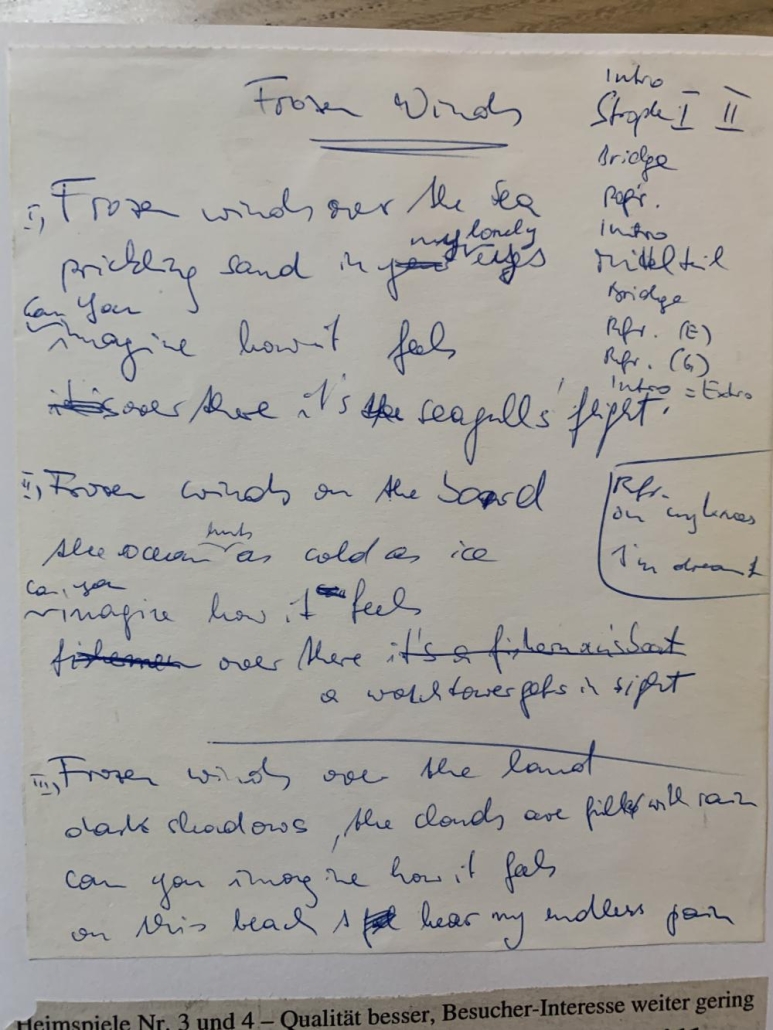 Frozen Winds
I, Frozen winds over the sea
my lonely
prickling sand in your eyes
Can you
imagine how it feels
it is over there it's the seagulls' flight.
II, Frozen winds on the board
hurts
the ocean as cold as ice
can you
imagine how it feels
fishermen over there it's a fisherman's boat
a watchtower gets in sight
III, Frozen winds over the land
dark shadows, the clouds are filled with rain
can you imagine how it feels
on this beach I hear my endless pain
Intro
Strophe I II
Bridge
Refr.
Intro
Mittelteil
Bridge
Refr. (E)
Refr. (G)
Intro = Extro
Refr.
on my knees
I'm dreamt
Heimspiele Nr. 3 und 4 – Qualität besser, Besucher-Interesse weiter gering